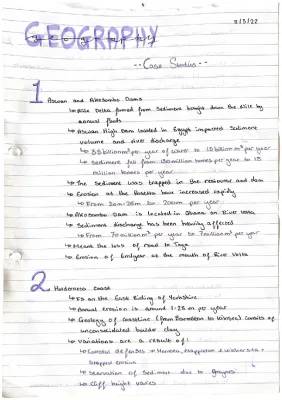 11/5/22
GEOGRAPHY
-- Case Studies --
1 Aswan and Akosombo Dams
↳ Nile Delta formed from Sediment brought down the Nile by
annual floods
↳ Aswan High Dam located in Egypt impacted Sediment
volume and river discharge
↳ 35 billion m³ per year of water to 10 billion m³ per year
↳ Sediment fell from 130 million tonnes per year to 15
million tonnes per year
↳ The Sediment was trapped in the reservoir and dam
↳ Erosion at the Rosetta have increased rapidly
↳ From 20m-25m to 200m per year
↳ Akosombo Dam is located in Ghana on River Volta
↳ Sediment discharge has been heavily affected
↳ From 70 million m³ per year to 7 million m³ per year
↳ Meant the loss of road to Togo
↳ Erosion of 6m/year at the mouth of River Volta
2 Holderness Coast
↳ Is on the East Riding of Yorkshire
↳ Annual erosion is around 1.25 m per year
↳ Geology of coastline (from Barmston to Kilnsea) consists of
unconsolidated boulder clay
↳ Variations are a result of:
↳ Coastal defenses → Hornsea, Mappleton + Withernsea →
Stopped erosion
↳ Starvation of Sediment due to groynes
↳ Cliff height varies